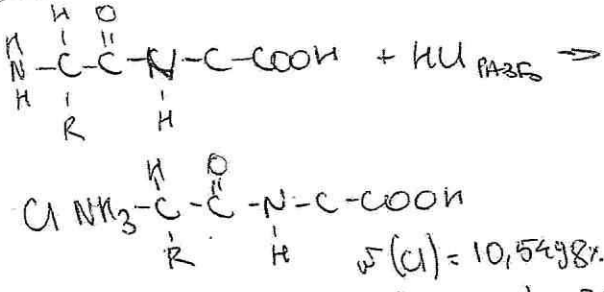 H O
H
N-C-C-N-C-COOH + HCl РАЗБ →
H R H
H O
Cl NH3-C-C-N-C-COOH
R H
ω(Cl) = 10,5498%